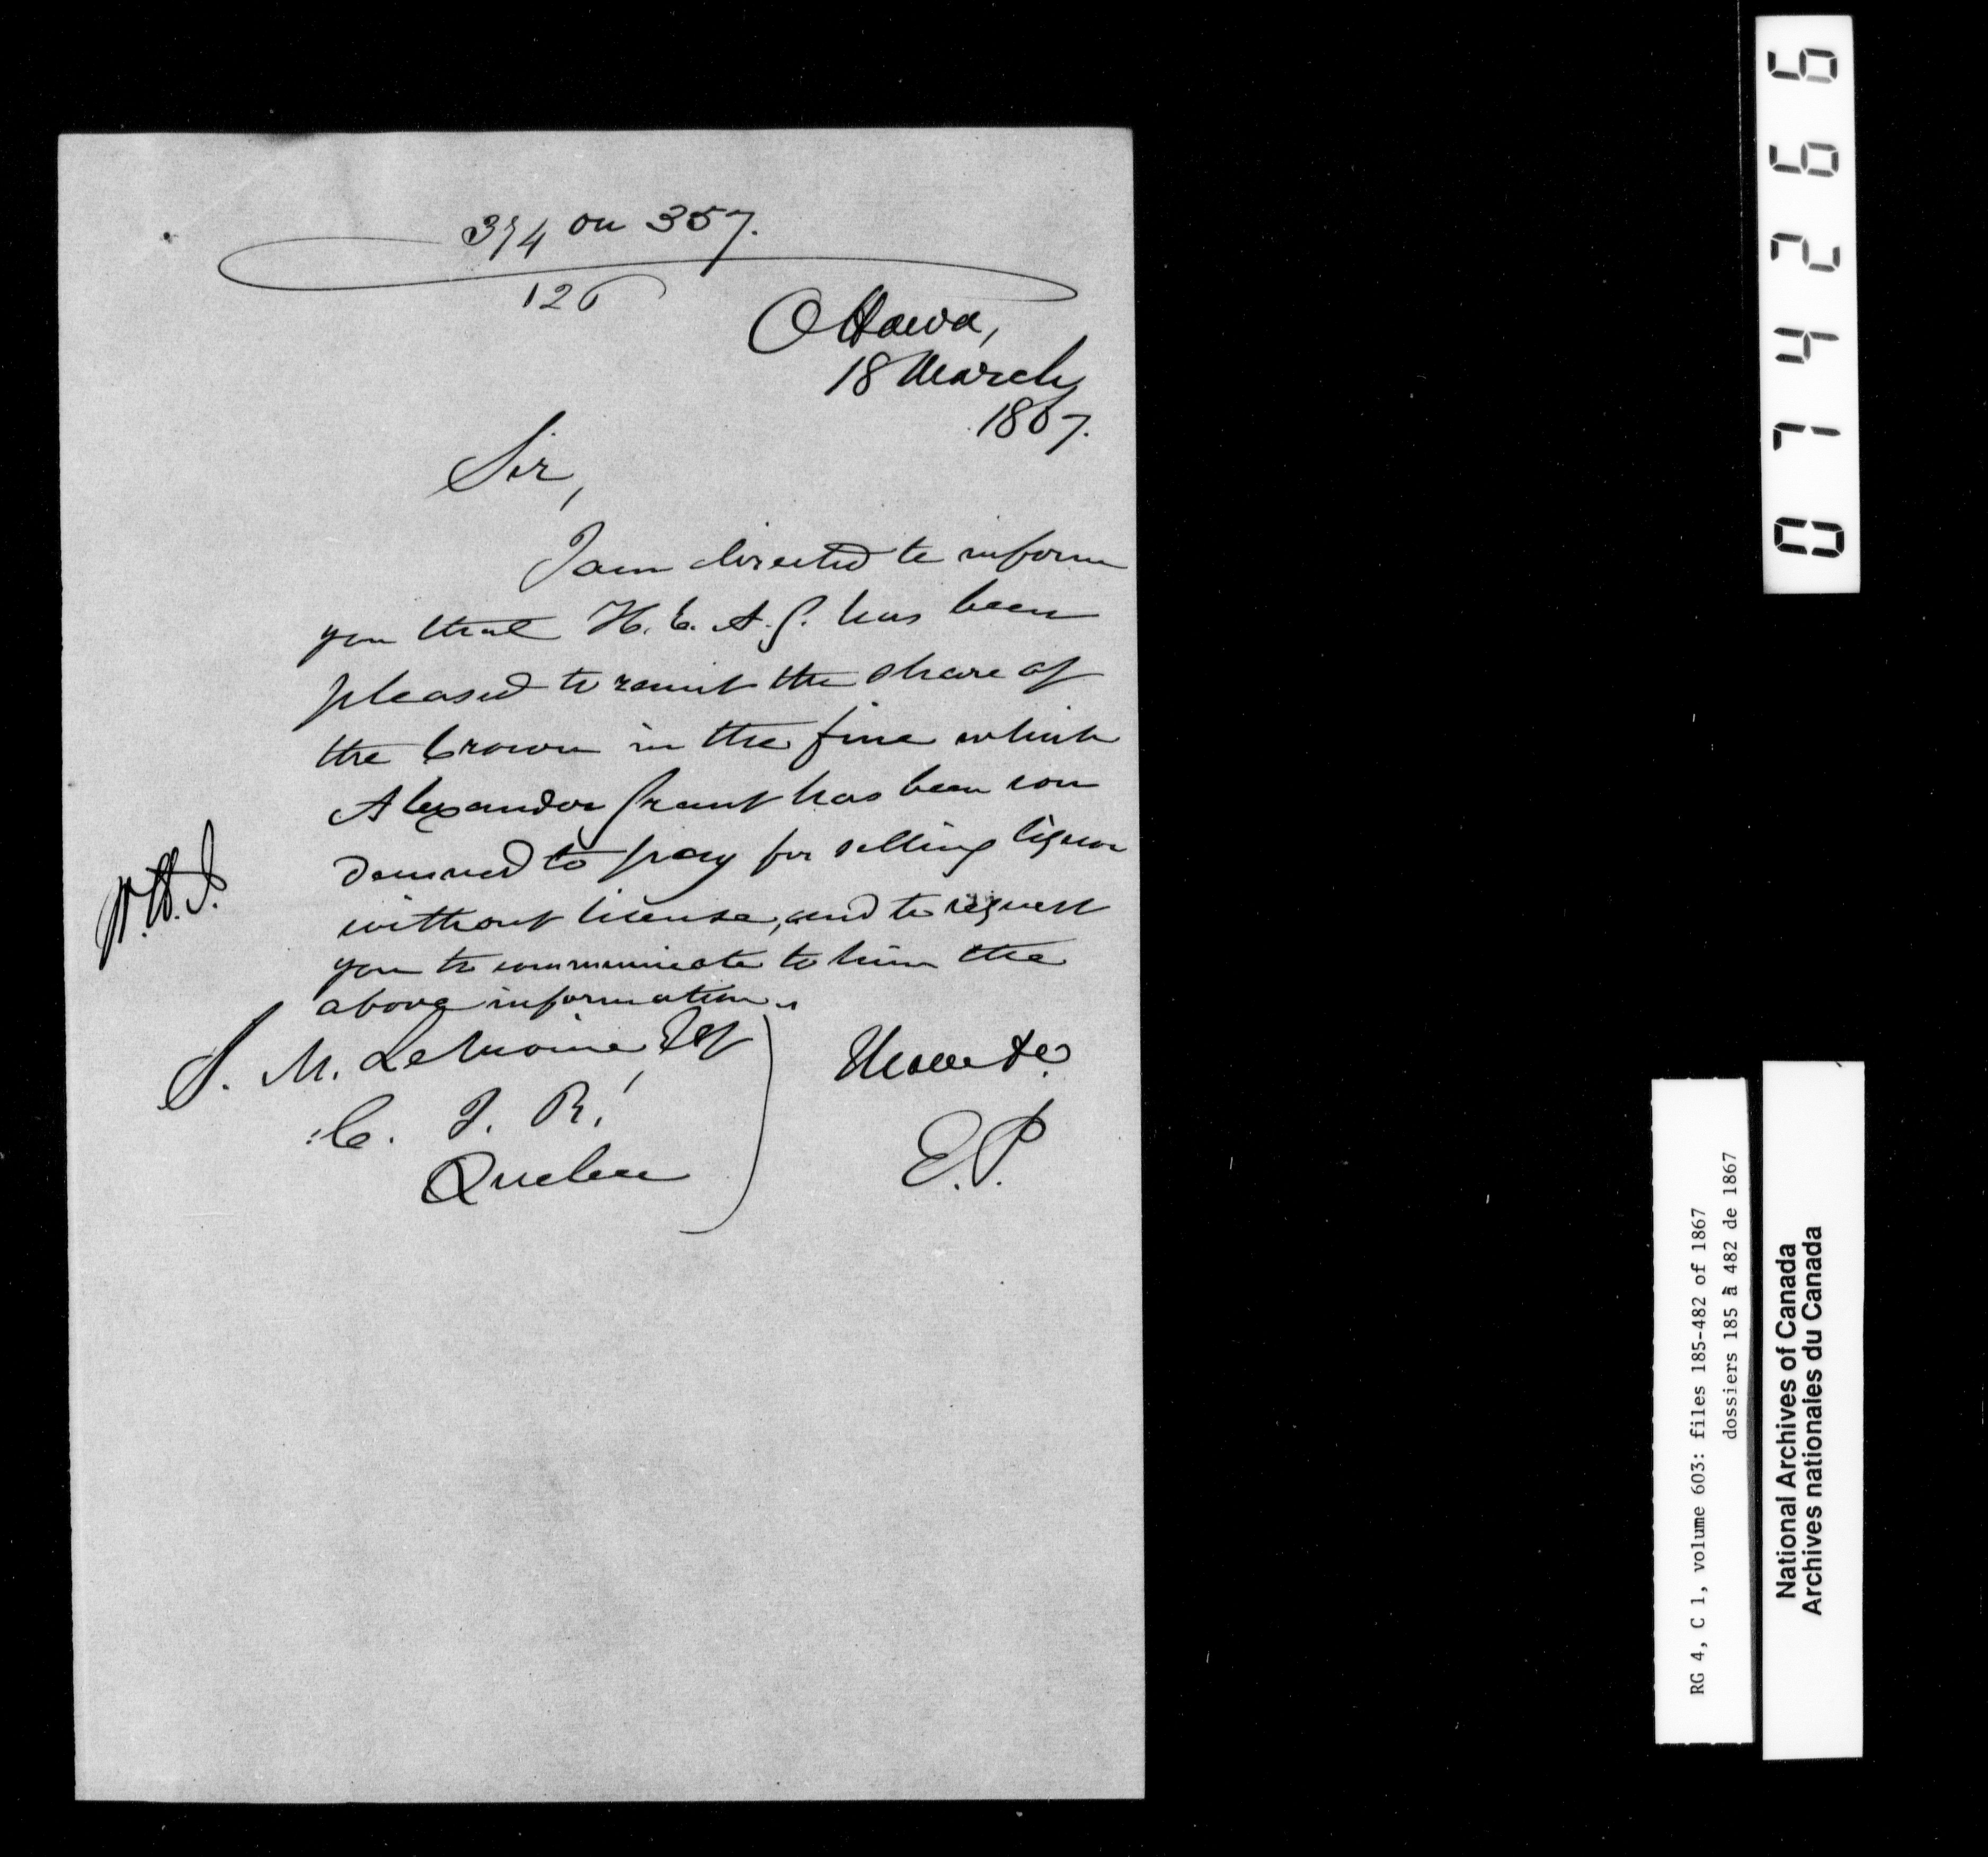 374 on 357.
126
Ottawa,
18 March
1867.
Sir,
I am directed to inform
you that H. E. A. G. has been
pleased to remit the share of
the Crown in the fine which
Alexander Grant has been con
demned to pay for selling liquor
without license, and to request
you to communicate to him the
above information.
J. M. LeMoine, Esq
C. I. R.
Quebec
E. P.
074266
RG 4, C 1, volume 603: files 185-482 of 1867
dossiers 185 à 482 de 1867
National Archives of Canada
Archives nationales du Canada